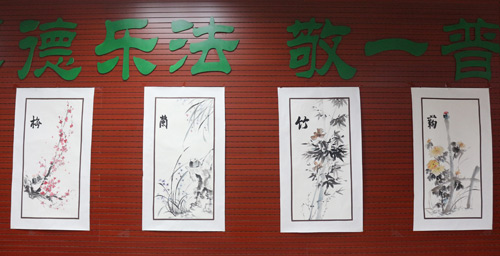 德乐法 敬一普
梅 蘭 竹 菊